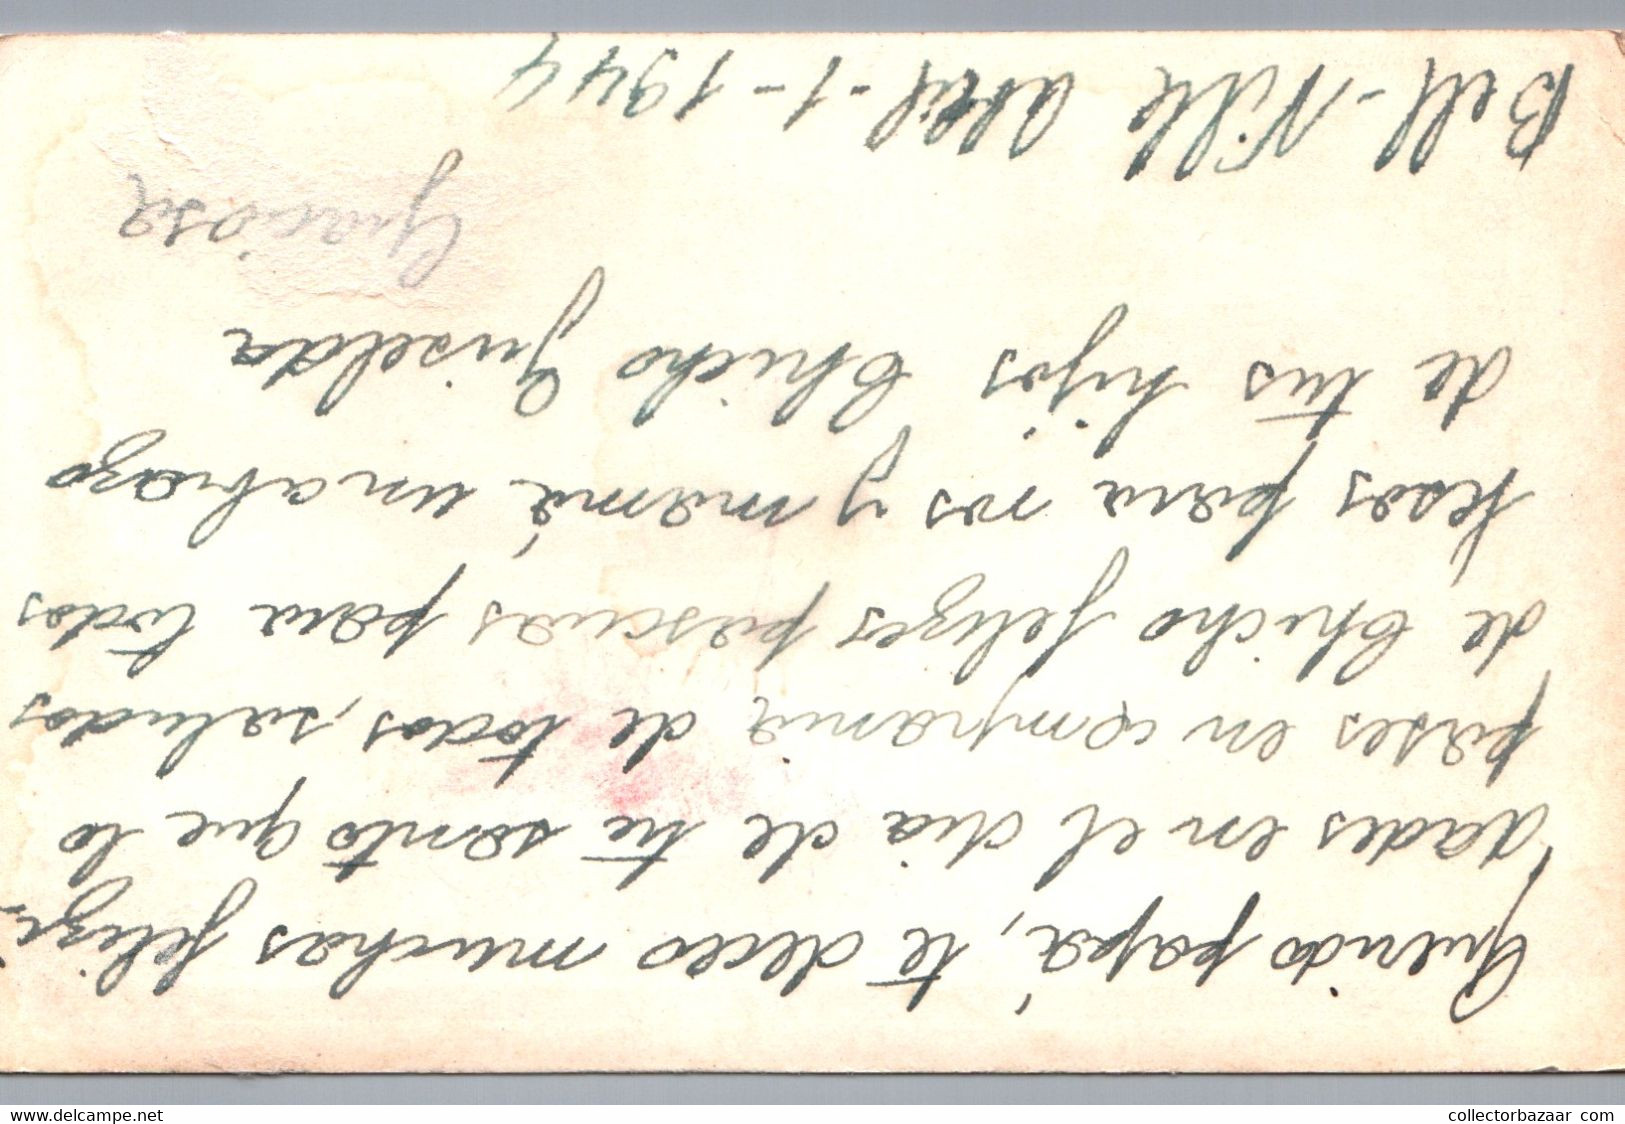 Querido papá, te deceo muchas felizi
dades en el dia de tu santo que lo
pases en compania de todos, saludos
de Chicho felizes pascuas para todos
besos para vos y mamá un abrazo
de tus hijos Chicho Griselda
Graciosa
Bell-Ville abril-1-1944
delcampe.net
collectorbazaar com